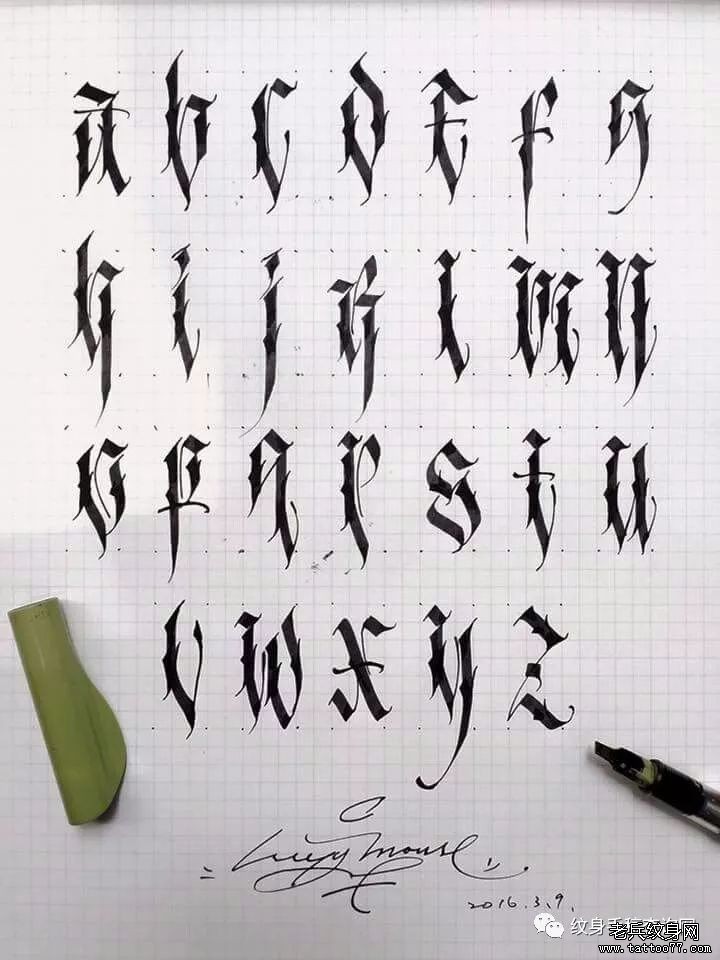 a b c d e f g
h i j k l m n
o p q r s t u
v w x y z
2016.3.9.
老兵纹身网
www.tattoo77.com